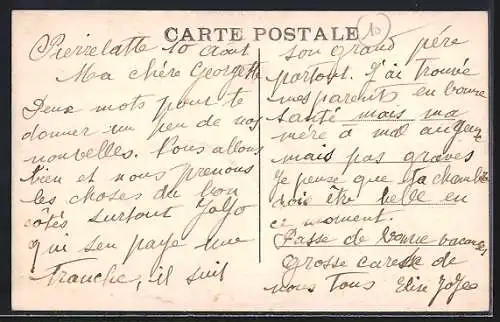 CARTE POSTALE
10
Pierrelatte 10 août
Ma chère Georgette
Deux mots pour te
donner un peu de nos
nouvelles. Nous allons
bien et nous prenons
les choses du bon
côtés surtout JoJo
qui sen paye une
tranche, il suit
son grand père
partout. J'ai trouvée
mes parents en bonne
santé mais ma
mère a mal au
mais pas graves
Je pense que ta chambre
dois être belle en
ce moment.
Passe de bonne vacances
Grosse caresse de
nous tous JoJo